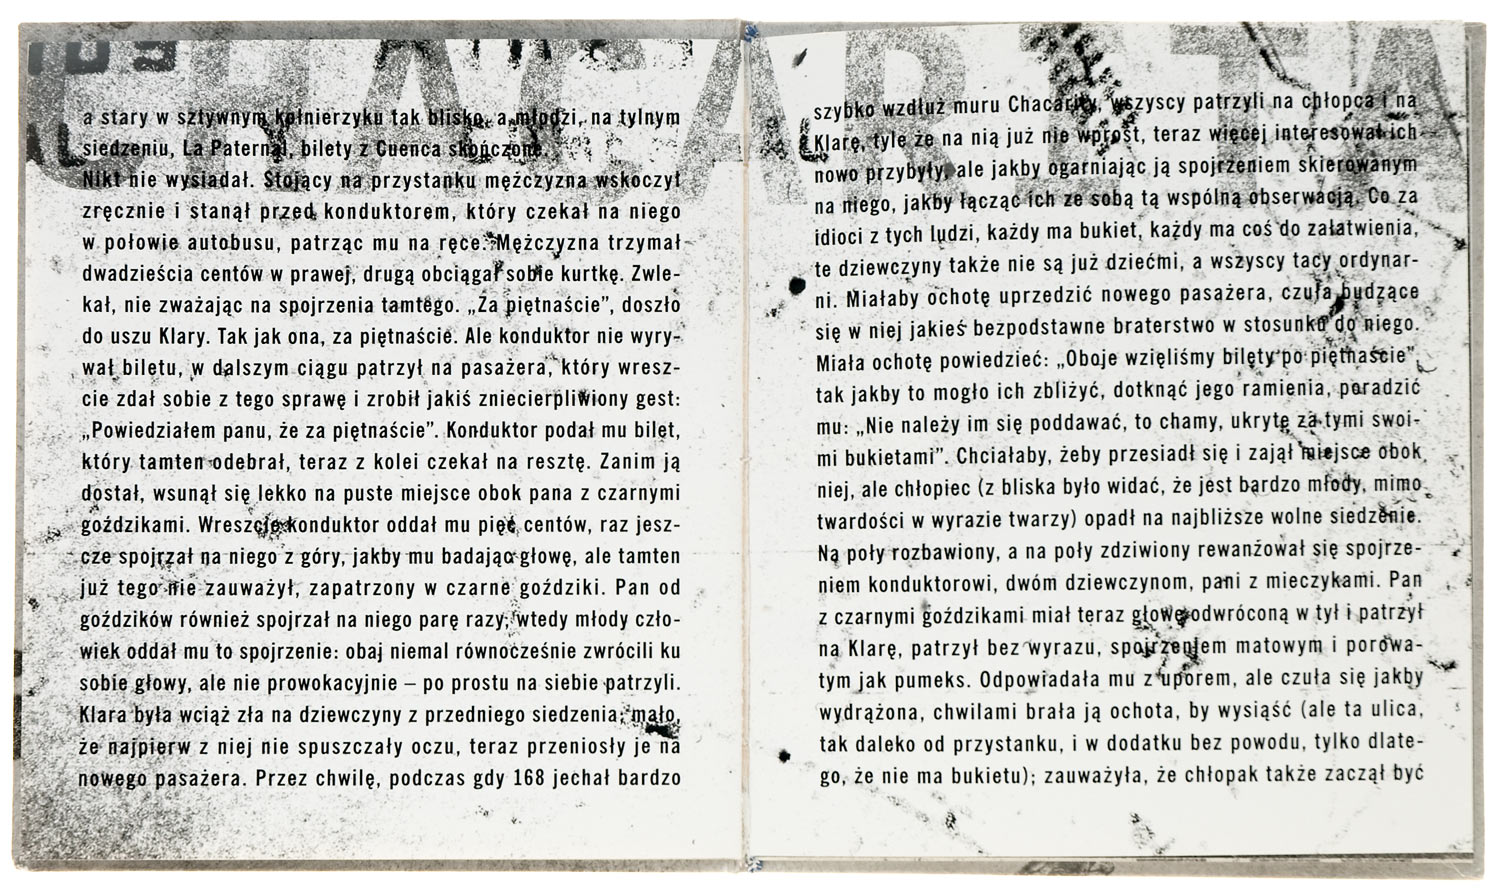 CHACARITA
a stary w sztywnym kołnierzyku tak blisko, a młodzi, na tylnym
siedzeniu, La Paternal, bilety z Cuenca skończone.
Nikt nie wysiadał. Stojący na przystanku mężczyzna wskoczył
zręcznie i stanął przed konduktorem, który czekał na niego
w połowie autobusu, patrząc mu na ręce. Mężczyzna trzymał
dwadzieścia centów w prawej, drugą obciągał sobie kurtkę. Zwle-
kał, nie zważając na spojrzenia tamtego. „Za piętnaście”, doszło
do uszu Klary. Tak jak ona, za piętnaście. Ale konduktor nie wyry-
wał biletu, w dalszym ciągu patrzył na pasażera, który wresz-
cie zdał sobie z tego sprawę i zrobił jakiś zniecierpliwiony gest:
„Powiedziałem panu, że za piętnaście”. Konduktor podał mu bilet,
który tamten odebrał, teraz z kolei czekał na resztę. Zanim ją
dostał, wsunął się lekko na puste miejsce obok pana z czarnymi
goździkami. Wreszcie konduktor oddał mu pięć centów, raz jesz-
cze spojrzał na niego z góry, jakby mu badając głowę, ale tamten
już tego nie zauważył, zapatrzony w czarne goździki. Pan od
goździków również spojrzał na niego parę razy, wtedy młody czło-
wiek oddał mu to spojrzenie: obaj niemal równocześnie zwrócili ku
sobie głowy, ale nie prowokacyjnie – po prostu na siebie patrzyli.
Klara była wciąż zła na dziewczyny z przedniego siedzenia; mało,
że najpierw z niej nie spuszczały oczu, teraz przeniosły je na
nowego pasażera. Przez chwilę, podczas gdy 168 jechał bardzo
szybko wzdłuż muru Chacarity, wszyscy patrzyli na chłopca i na
Klarę, tyle że na nią już nie wprost, teraz więcej interesował ich
nowo przybyły, ale jakby ogarniając ją spojrzeniem skierowanym
na niego, jakby łącząc ich ze sobą tą wspólną obserwacją. Co za
idioci z tych ludzi, każdy ma bukiet, każdy ma coś do załatwienia,
te dziewczyny także nie są już dziećmi, a wszyscy tacy ordynar-
ni. Miałaby ochotę uprzedzić nowego pasażera, czuła budzące
się w niej jakieś bezpodstawne braterstwo w stosunku do niego.
Miała ochotę powiedzieć: „Oboje wzięliśmy bilety po piętnaście”,
tak jakby to mogło ich zbliżyć, dotknąć jego ramienia, poradzić
mu: „Nie należy im się poddawać, to chamy, ukryte za tymi swoi-
mi bukietami”. Chciałaby, żeby przesiadł się i zajął miejsce obok
niej, ale chłopiec (z bliska było widać, że jest bardzo młody, mimo
twardości w wyrazie twarzy) opadł na najbliższe wolne siedzenie.
Na poły rozbawiony, a na poły zdziwiony rewanżował się spojrze-
niem konduktorowi, dwóm dziewczynom, pani z mieczykami. Pan
z czarnymi goździkami miał teraz głowę odwróconą w tył i patrzył
na Klarę, patrzył bez wyrazu, spojrzeniem matowym i porowa-
tym jak pumeks. Odpowiadała mu z uporem, ale czuła się jakby
wydrążona, chwilami brała ją ochota, by wysiąść (ale ta ulica,
tak daleko od przystanku, i w dodatku bez powodu, tylko dlate-
go, że nie ma bukietu); zauważyła, że chłopak także zaczął być